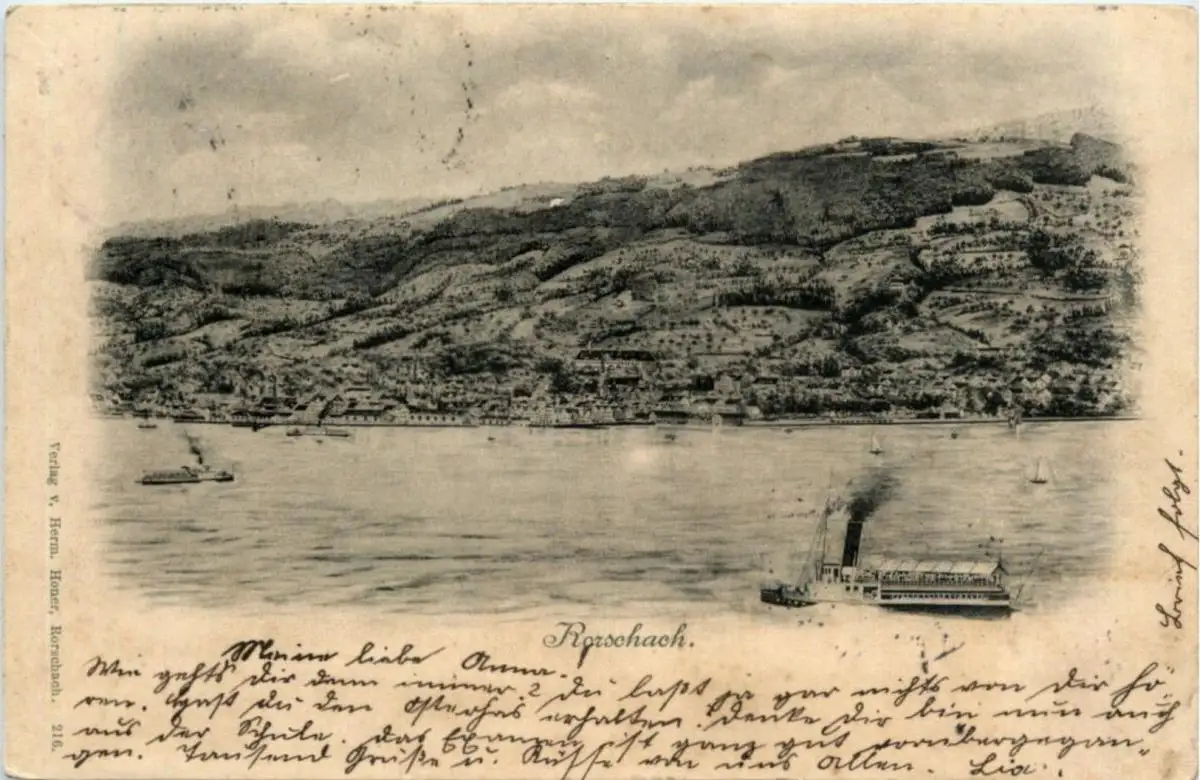 Rorschach.
Meine liebe Anna.
Wie gehts dir denn immer? du laßt ja gar nichts von dir hö-
ren. Hast du den Osterhas erhalten? denke dir bin nun auch
aus der Schule. das Examen ist ganz gut vorübergegan-
gen. Tausend Grüße u. Küsse von uns Allen. Lia.
Brief folgt.
Verlag v. Herm. Honer, Rorschach. 216.